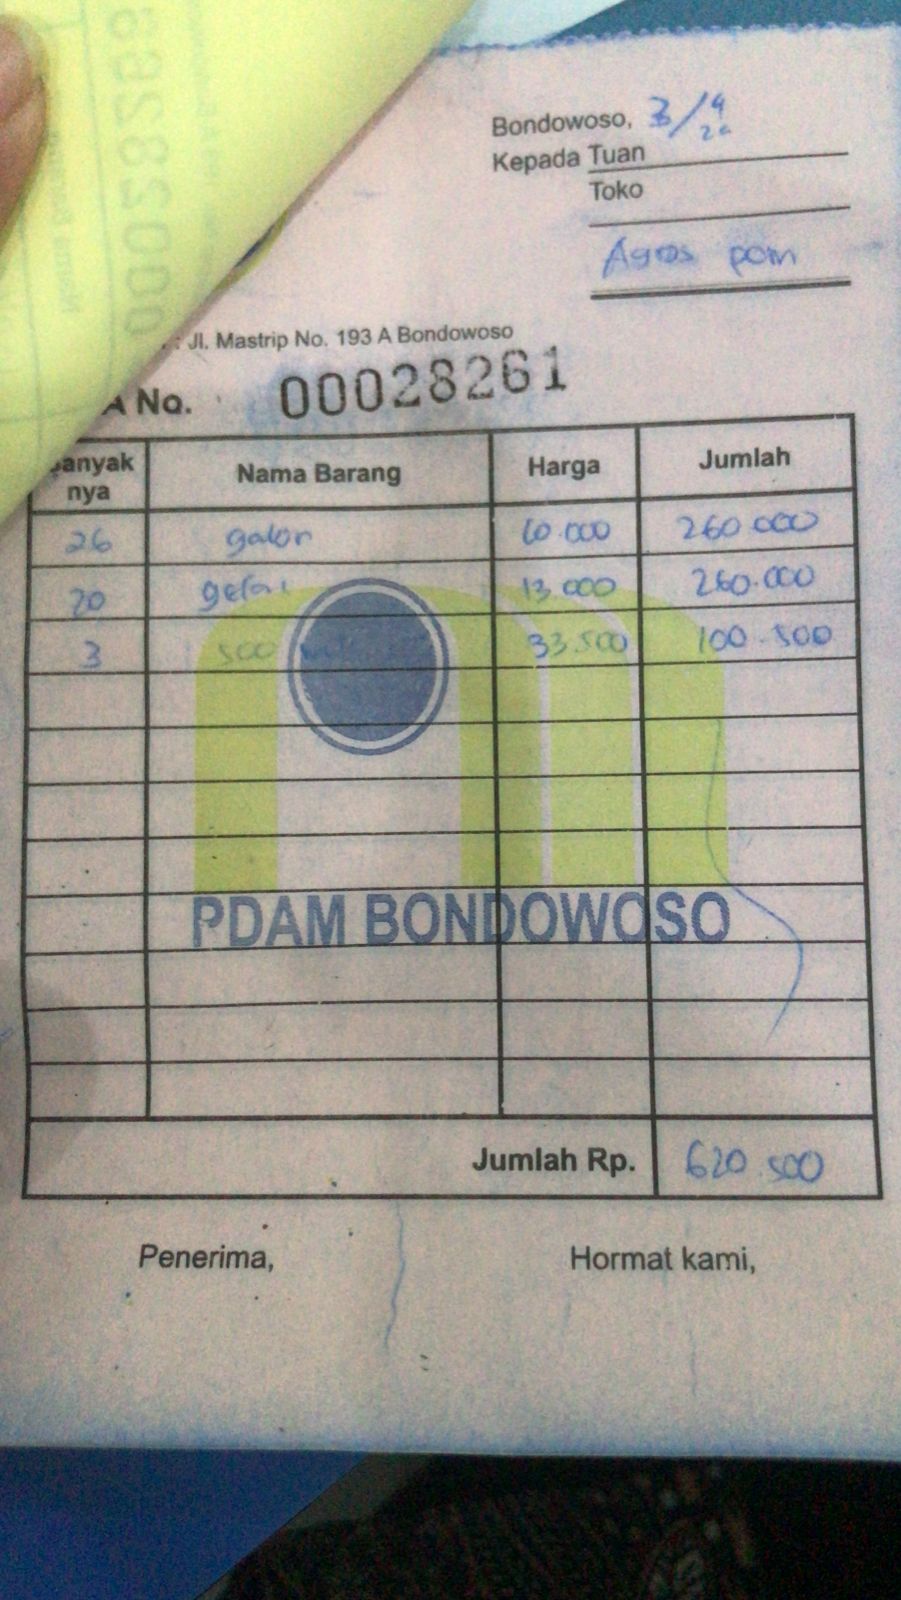 Bondowoso, 3/4
Kepada Tuan
Toko
Agros pom
: Jl. Mastrip No. 193 A Bondowoso
A No. 00028261
anyak nya Nama Barang Harga Jumlah
26 galon 10.000 260.000
20 gelas 13.000 260.000
3 500 33.500 100.500
PDAM BONDOWOSO
Jumlah Rp. 620.500
Penerima, Hormat kami,